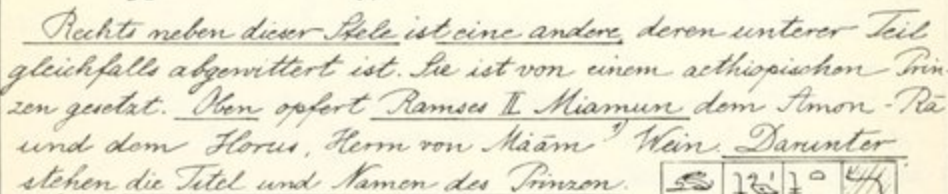 Rechts neben dieser Stele ist eine andere, deren unterer Teil
gleichfalls abgewittert ist. Sie ist von einem aethiopischen Prin-
zen gesetzt. Oben opfert Ramses II Miamun dem Amon-Rā
und dem Horus, Herrn von Māām ¹) Wein. Darunter
stehen die Titel und Namen des Prinzen.